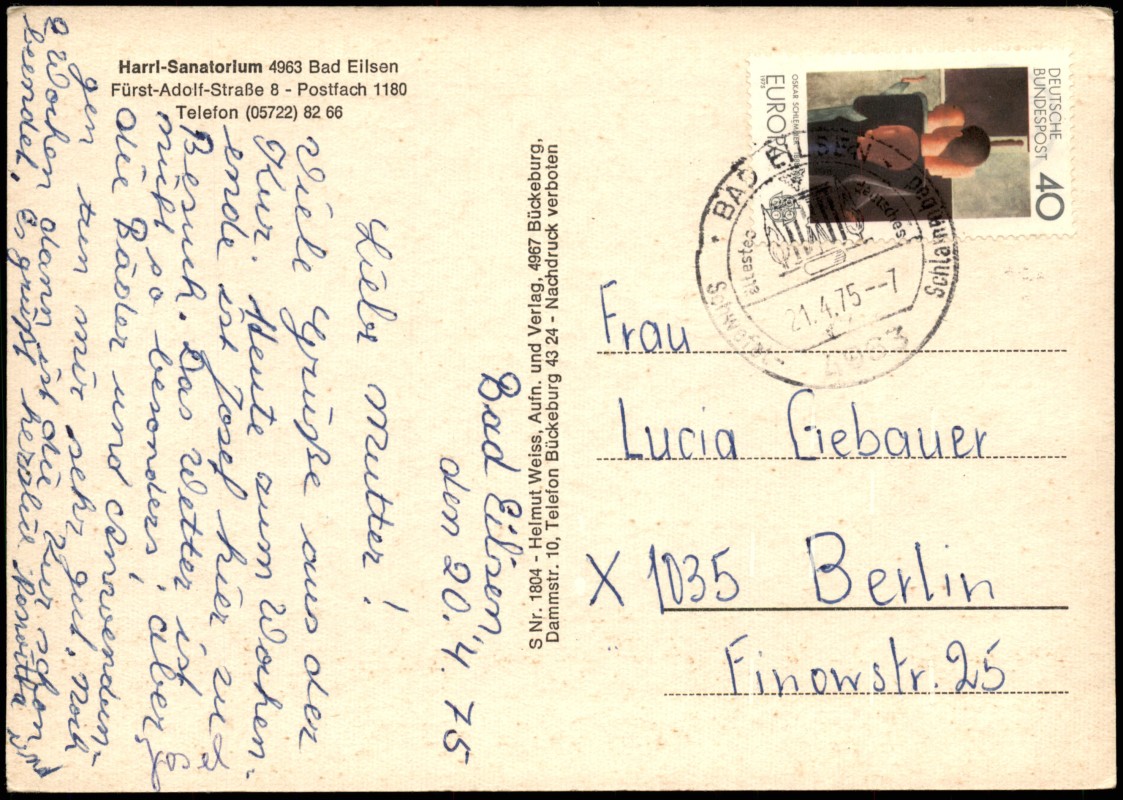 Harrl-Sanatorium 4963 Bad Eilsen
Fürst-Adolf-Straße 8 - Postfach 1180
Telefon (05722) 82 66
Bad Eilsen,
den 20. 4. 75
Liebe Mutter!
Viele Grüße aus der
Kur. Heute zum Wochen-
ende ist Josef hier zu
Besuch. Das Wetter ist
nicht so besonders, aber
die Bäder und Anwendun-
gen tun mir sehr gut. Noch
2 Wochen dann ist die Kur schon
beendet. Es grüßt herzlich
S Nr. 1804 - Helmut Weiss, Aufn. und Verlag, 4967 Bückeburg,
Dammstr. 10, Telefon Bückeburg 43 24 - Nachdruck verboten
DEUTSCHE
BUNDESPOST
40
OSKAR SCHLEMMER
1975
EUROPA
BAD EILSEN
21.4.75--7
4963
Schlammbad
Deutsches
ältestes
Schwefel-
Frau
Lucia Giebauer
X 1035 Berlin
Finowstr. 25